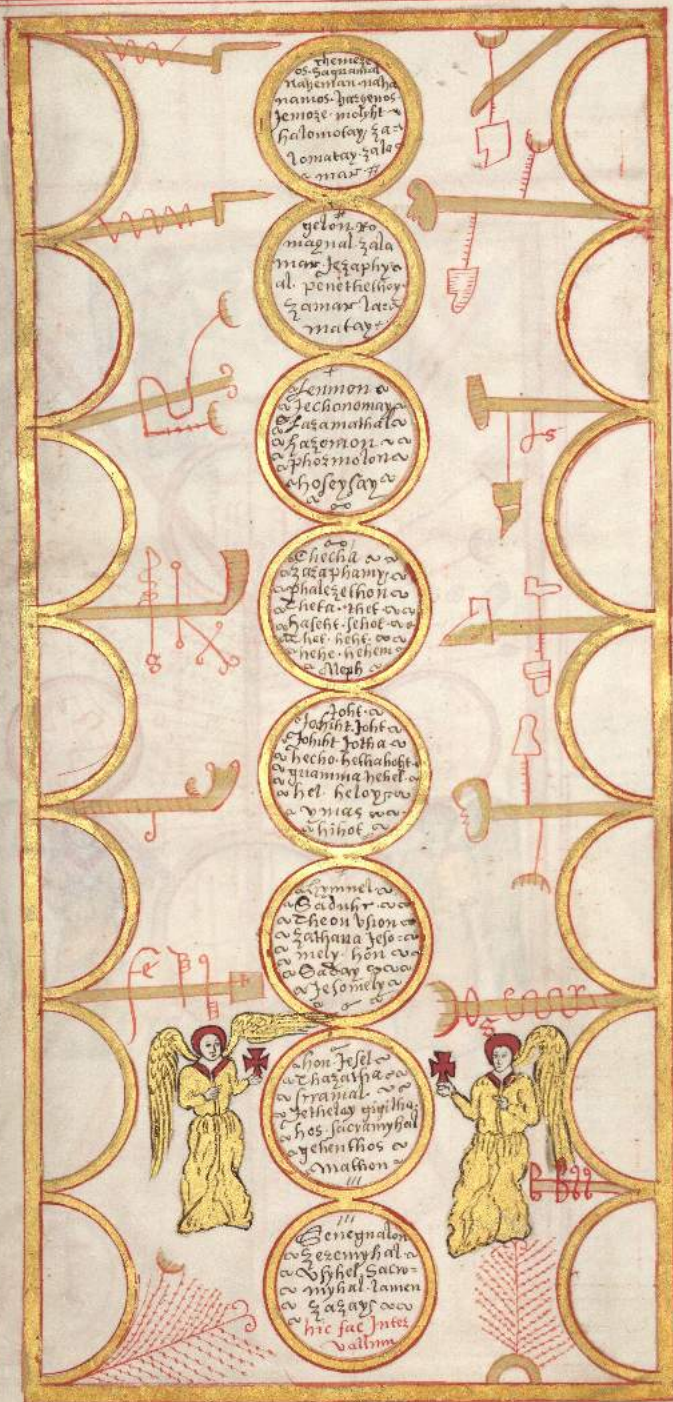 themeze
os. Saquanna
naheman. naha
namos. hazenos
Jemoze. molyht
halomotay. za=
lomatay. zalo
mar
gelon. Ro
magnal. zala
mar. Jezaphy
al. penethelhoy
zamar. lara
matay
Lemnon
Jechonomay
Lazamathal
hazomon
phozmolon
hoseysay
Checha
zazaphamy
phalezelhon
Cheta. thet
haseht. sehot
Chet. heht
hehe. hehem
Neph
Joht
Johiht. Joht
Johiht Jotha
hecho. hethahoht
quamma hehel
hel. heloy
ymas
hihot
Saduhc
Theon vsion
zathana Jeso=
mely. hon
Saday
Jesomely
hon. Jesel
Chazatha
sramal
Jethelay gigitha
hos. sacramyhal
gehenthos
mathon
Senegnalon
zezemyhal
vsyhel Sacro=
myhal. lamen
zazays
hic fac Inter
vallum